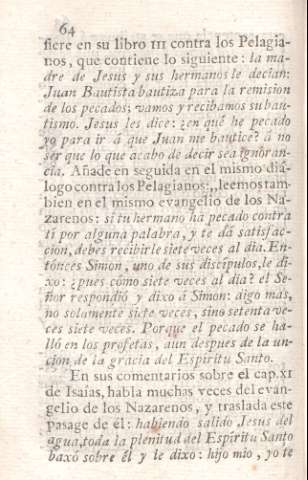 64
fiere en su libro III contra los Pelagia-
nos, que contiene lo siguiente: la ma-
dre de Jesus y sus hermanos le decian:
Juan Bautista bautiza para la remision
de los pecados; vamos y recibamos su bau-
tismo. Jesus les dice: ¿en qué he pecado
yo para ir á que Juan me bautice? á no
ser que lo que acabo de decir sea ignoran-
cia. Añade en seguida en el mismo diá-
logo contra los Pelagianos: „leemos tam-
bien en el mismo evangelio de los Na-
zarenos: si tu hermano ha pecado contra
tí por alguna palabra, y te dá satisfac-
cion, debes recibirle siete veces al dia. En-
tónces Simon, uno de sus discípulos, le di-
xo: ¿pues cómo siete veces al dia? el Se-
ñor respondió y dixo á Simon: aigo mas,
no solamente siete veces, sino setenta ve-
ces siete veces. Porque el pecado se ha-
lló en los profetas, aun despues de la un-
cion de la gracia del Espíritu Santo.
En sus comentarios sobre el cap. XI
de Isaías, habla muchas veces del evan-
gelio de los Nazarenos, y traslada este
pasage de él: habiendo salido Jesus del
agua, toda la plenitud del Espíritu Santo
baxó sobre él y le dixo: hijo mio, yo te